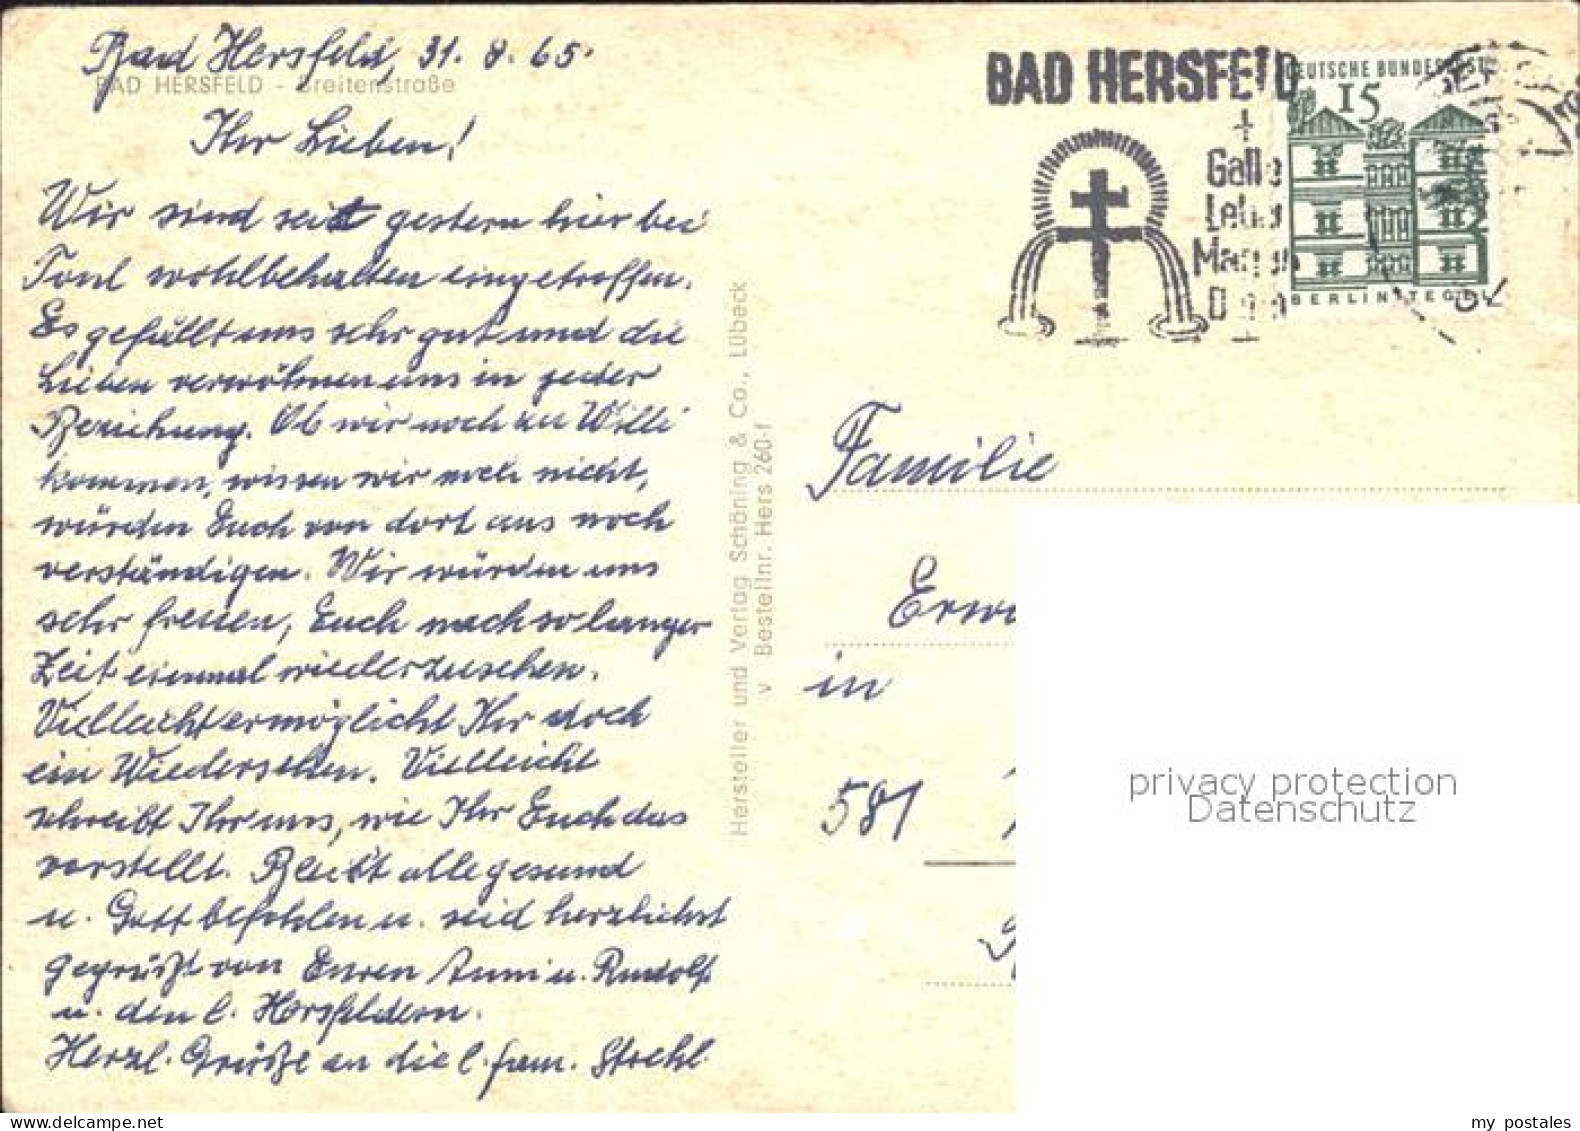 Bad Hersfeld, 31. 8. 65.
BAD HERSFELD - Breitenstraße
Ihr Lieben!
Wir sind seit gestern hier bei
wohlbehalten eingetroffen.
Es gefällt uns sehr gut und die
Lieben verwöhnen uns in jeder
Beziehung. Ob wir noch zu Willi
kommen, wissen wir noch nicht,
würden Euch von dort aus noch
verständigen. Wir würden uns
sehr freuen, Euch nach so langer
Zeit einmal wiederzusehen.
Vielleicht ermöglicht Ihr doch
ein Wiedersehen. Vielleicht
schreibt Ihr uns, wie Ihr Euch das
vorstellt. Bleibt alle gesund
u. Gott befohlen u. seid herzlichst
gegrüßt von Euren Anni u. Rudolf
u. den l. Hersfeldern.
Herzl. Grüße an die l. Fam. Strehl.
Hersteller und Verlag Schöning & Co., Lübeck
v Bestellnr. Hers 260-f
BAD HERSFELD
+
Galle
Leber
Magen
Darm
+
DEUTSCHE BUNDESPOST
15
BERLIN-TEGEL
Familie
Erwi
in
581
privacy protection
Datenschutz
my postales